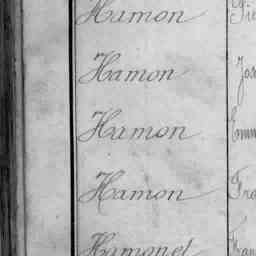 Hamon
Hamon
Hamon
Hamon
Hamonet